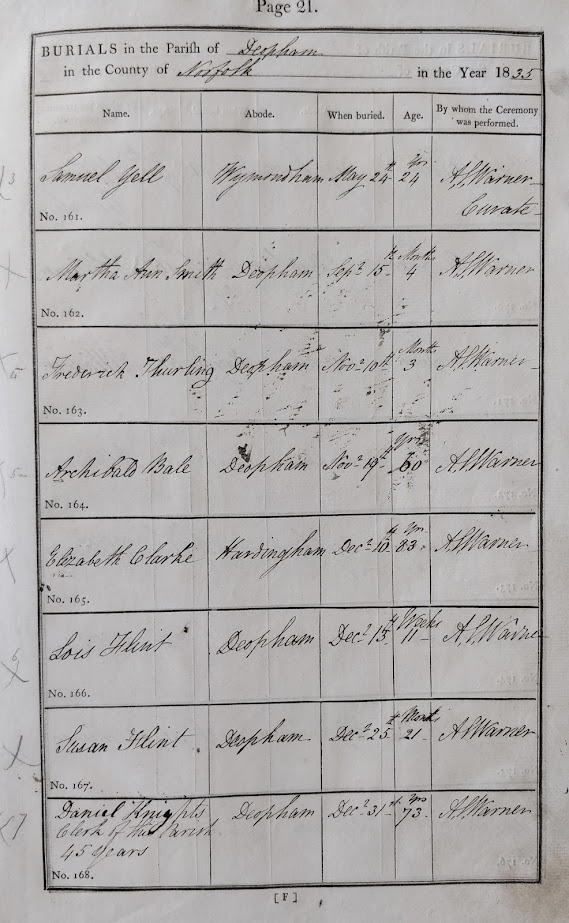 Page 21.
BURIALS in the Parish of Deopham
in the County of Norfolk in the Year 1835
Name. Abode. When buried. Age. By whom the Ceremony was performed.
Samuel Yell Wymondham May 24th 24 Yrs A,S,Warner
Curate
No. 161.
Martha Ann Smith Deopham Sepr 15th 4 Months A,S,Warner
No. 162.
Frederick Thurling Deopham Novr 10th 3 Months A,S,Warner
No. 163.
Archibald Bale Deopham Novr 19th 60 Yrs A,S,Warner
No. 164.
Elizabeth Clarke Hardingham Decr 10th 83 Yrs A,S,Warner
No. 165.
Lois Flint Deopham Decr 15th 11 Weeks A,S,Warner
No. 166.
Susan Flint Deopham Decr 25th 21 Months A,S,Warner
No. 167.
Daniel Knights Deopham Decr 31st 73 Yrs A,S,Warner
Clerk of this Parish
45 years
No. 168.
[F]